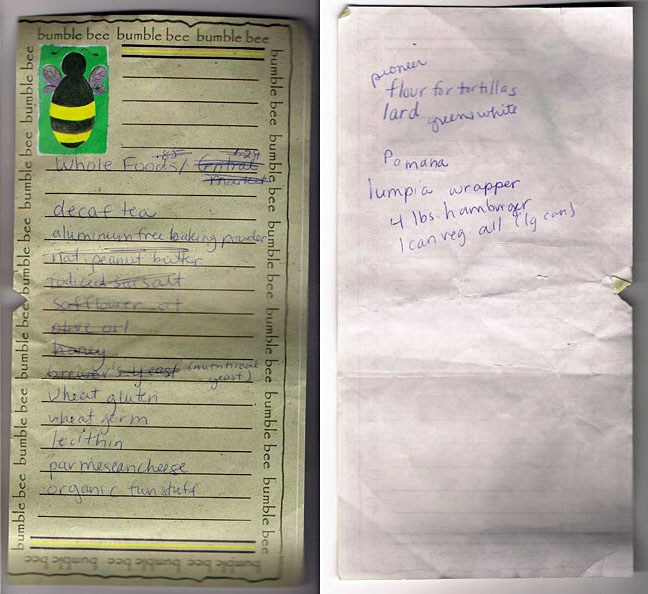 bumble bee bumble bee bumble bee
bumble bee bumble bee bumble bee bumble bee bumble bee bumble bee
bumble bee bumble bee bumble bee bumble bee bumble bee bumble bee
Whole Foods/ Central
Market
decaf tea
aluminum free baking powder
nat peanut butter
iodized sea salt
safflower oil
olive oil
honey
brewer's yeast (nutritional
yeast)
wheat gluten
wheat germ
lecithin
parmesean cheese
organic fun stuff
bumble bee bumble bee bumble bee
pioneer
flour for tortillas
lard green & white
Pomana
lumpia wrapper
4 lbs. hamburger
1 can reg. all (lg can)